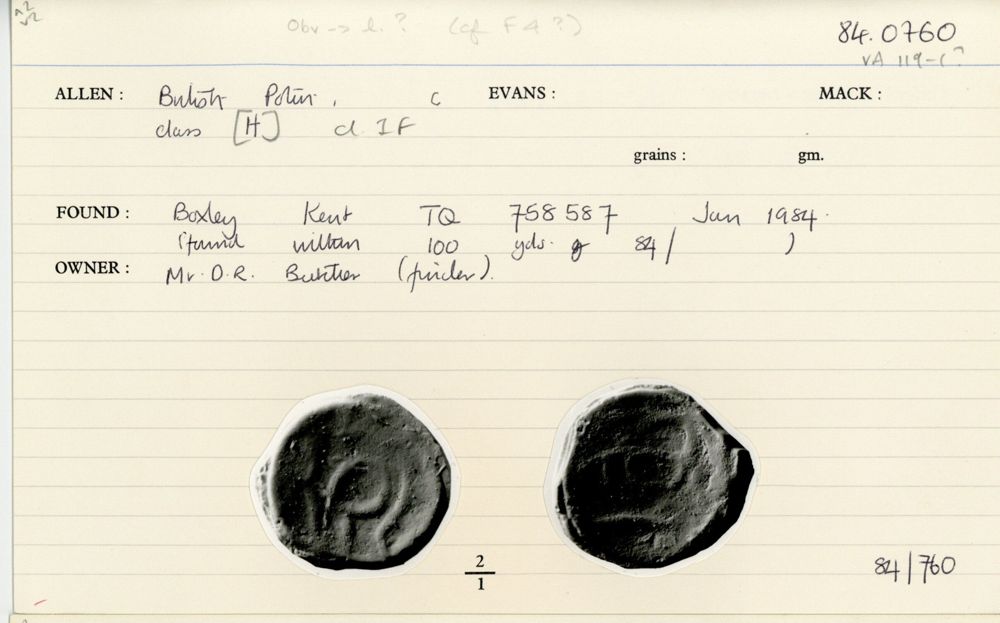 Obv → l. ? (cf F4?)
84.0760
VA 119-1?
ALLEN : British Potin, C EVANS : MACK :
class [H] cl. IF
grains : gm.
FOUND : Boxley Kent TQ 758 587 Jan 1984.
(found within 100 yds. of 84/ )
OWNER : Mr. D.R. Butcher (finder).
2
1
84/760